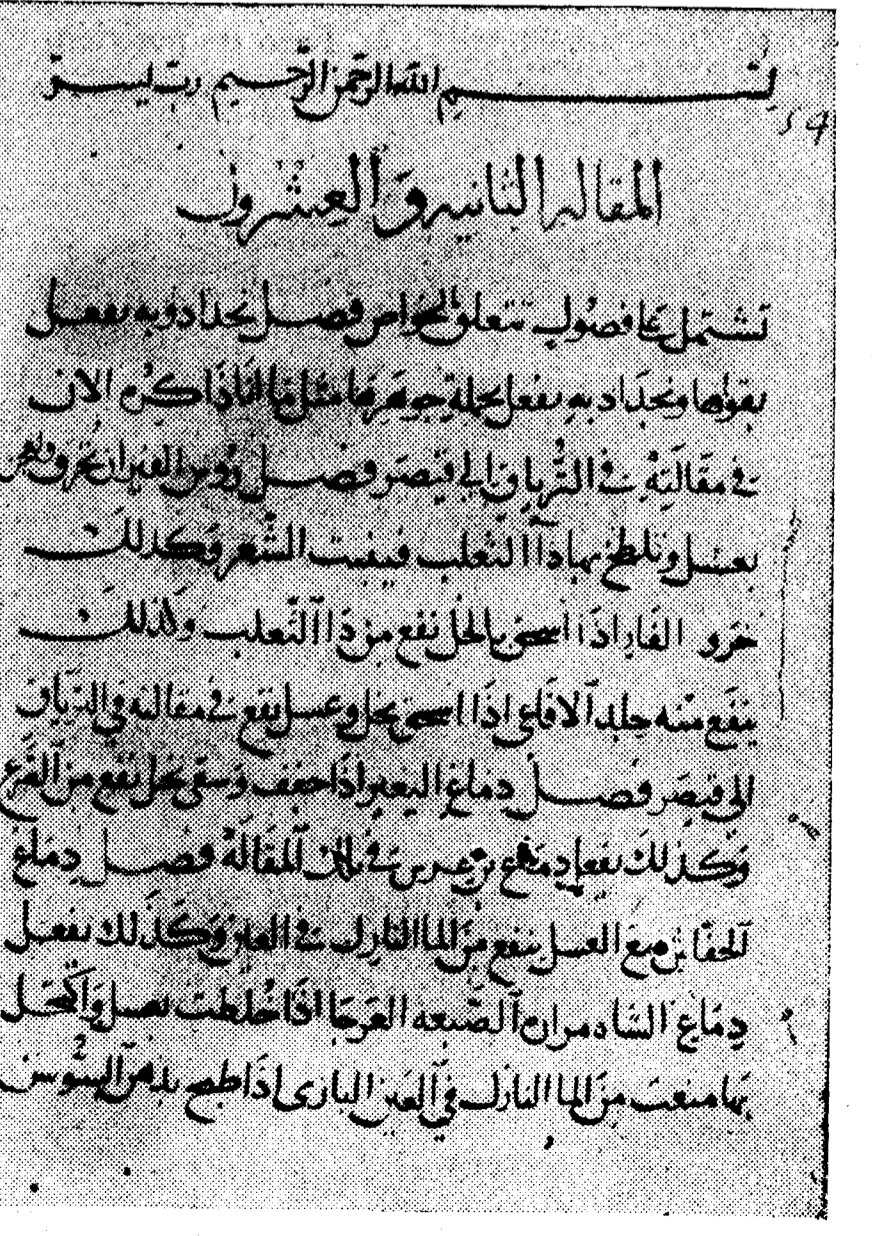 بسم الله الرحمن الرحيم رب يسر
54
المقاله الثانيه وَالعشرون
تشتمل على فصول تتعلق بالخواص فصل نجد ادويه تفعل
بقواها ونجد ادويه تفعل بجملة جوهرها مثل ما انا ذاكره الان
في مقالته في الترياق الى قيصر فصل رؤس الفيران تحرق وتعجن
بعسل وتلطخ بها داآ الثعلب فينبت الشعر وكذلك
خرو الفار اذا اسحق بالخل نفع من داآ الثعلب ولذلك
ينفع منه جلد الافاعي اذا اسحق بخل وعسل نفع في مقالته في الترياق
الى قيصر فصل دماغ البعير اذا جفف وسقى بخل نفع من الصرع
وكذلك يفعل دماغ بن عرس في تلك المقالة فصل دماغ
الخفاش مع العسل ينفع من الما النازل في العين وكذلك يفعل
دماغ الشاه مراره الضبعه العرجا اذا خلطت بعسل واكتحل
بها منعت من الما النازل في العين البازى اذا طبخ بدهن السوسن